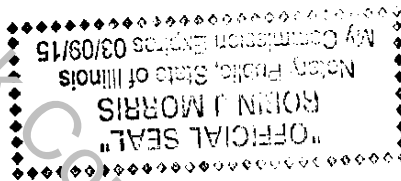 "OFFICIAL SEAL"
ROBIN J MORRIS
Notary Public, State of Illinois
My Commission Expires 03/09/15